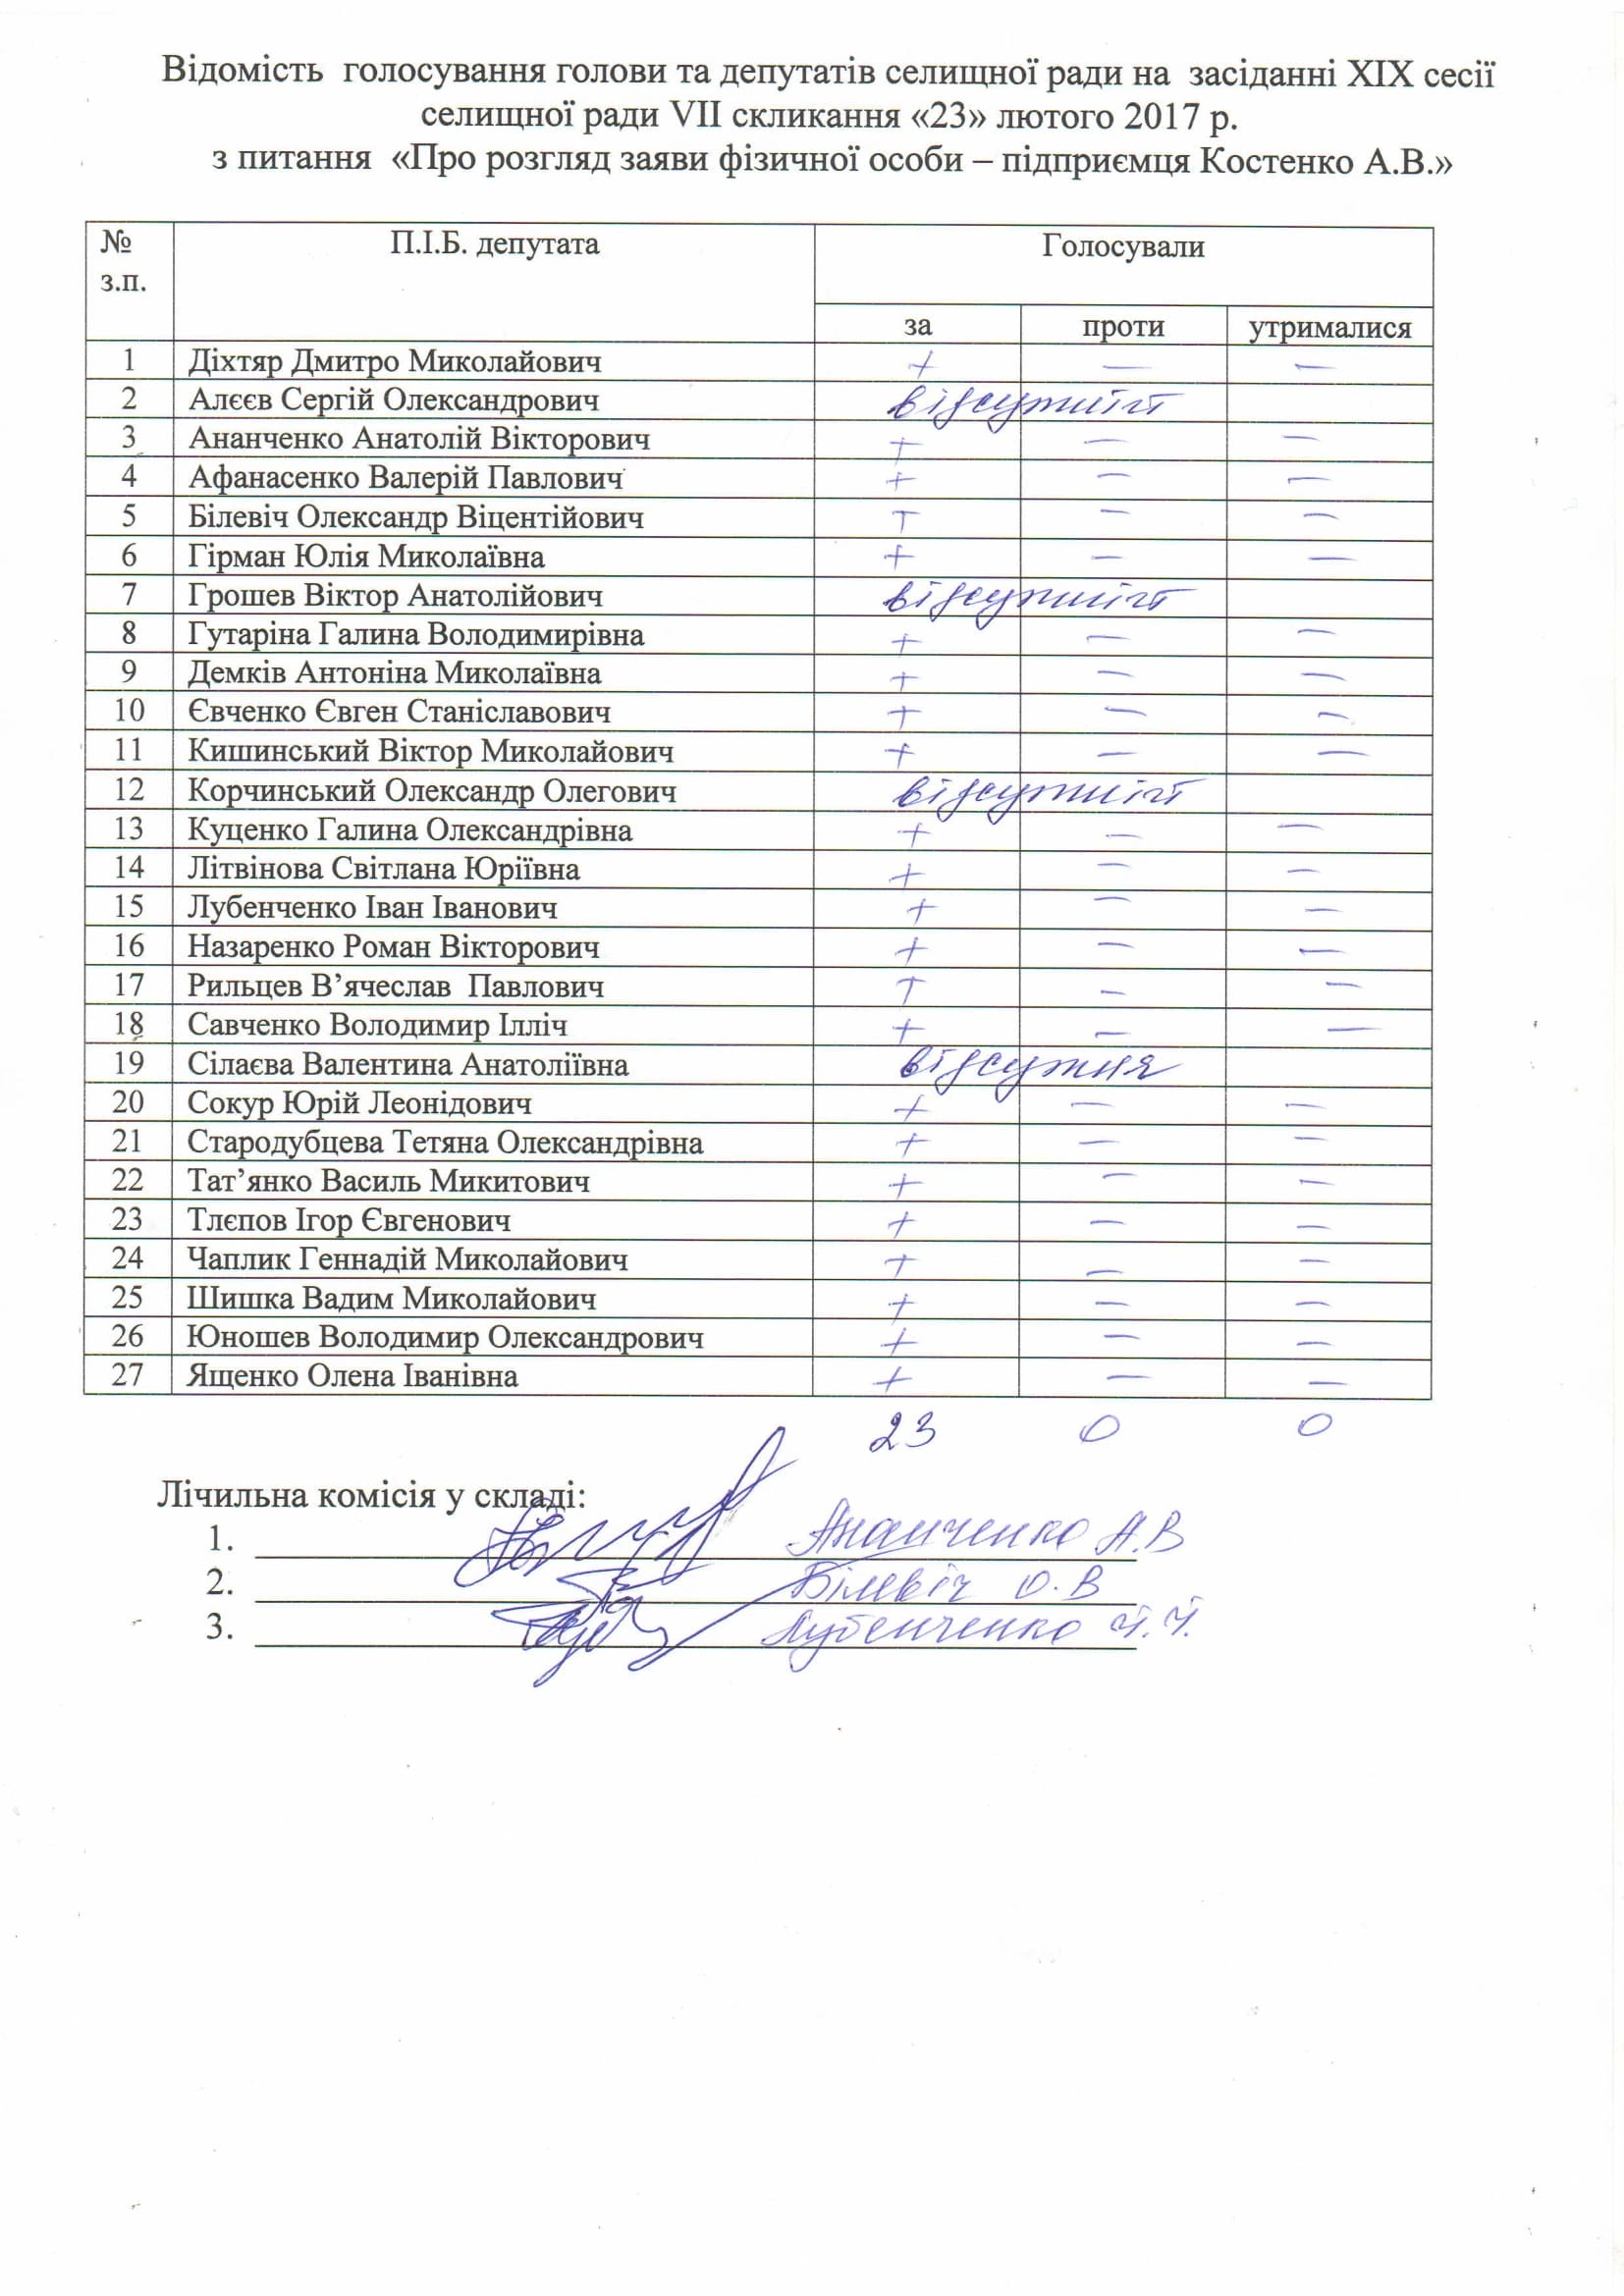 Відомість голосування голови та депутатів селищної ради на засіданні XIX сесії
селищної ради VII скликання «23» лютого 2017 р.
з питання «Про розгляд заяви фізичної особи – підприємця Костенко А.В.»
№ з.п. П.І.Б. депутата Голосували
за проти утрималися
1 Діхтяр Дмитро Миколайович + — —
2 Алєєв Сергій Олександрович відсутній
3 Ананченко Анатолій Вікторович + — —
4 Афанасенко Валерій Павлович + — —
5 Білевіч Олександр Віцентійович + — —
6 Гірман Юлія Миколаївна + — —
7 Грошев Віктор Анатолійович відсутній
8 Гутаріна Галина Володимирівна + — —
9 Демків Антоніна Миколаївна + — —
10 Євченко Євген Станіславович + — —
11 Кишинський Віктор Миколайович + — —
12 Корчинський Олександр Олегович відсутній
13 Куценко Галина Олександрівна + — —
14 Літвінова Світлана Юріївна + — —
15 Лубенченко Іван Іванович + — —
16 Назаренко Роман Вікторович + — —
17 Рильцев В’ячеслав Павлович + — —
18 Савченко Володимир Ілліч + — —
19 Сілаєва Валентина Анатоліївна відсутня
20 Сокур Юрій Леонідович + — —
21 Стародубцева Тетяна Олександрівна + — —
22 Тат’янко Василь Микитович + — —
23 Тлєпов Ігор Євгенович + — —
24 Чаплик Геннадій Миколайович + — —
25 Шишка Вадим Миколайович + — —
26 Юношев Володимир Олександрович + — —
27 Ященко Олена Іванівна + — —
23 0 0
Лічильна комісія у складі:
1. Ананченко А.В
2. Білевіч О.В
3. Лубенченко І.І.